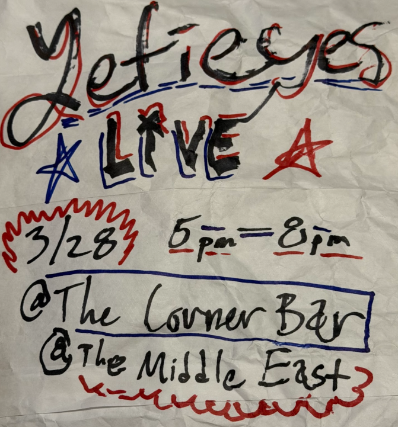 Yetieyes
LIVE
3/28 5pm-8pm
@The Corner Bar
@The Middle East